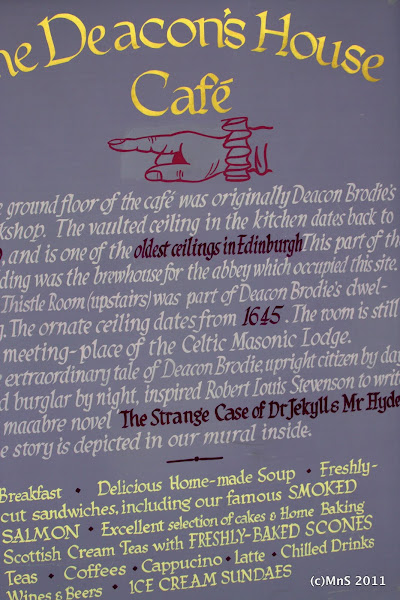 he Deacon's House
Café
e ground floor of the café was originally Deacon Brodie's
kshop. The vaulted ceiling in the kitchen dates back to
and is one of the oldest ceilings in Edinburgh This part of the
ding was the brewhouse for the abbey which occupied this site.
Thistle Room (upstairs) was part of Deacon Brodie's dwel-
g. The ornate ceiling dates from 1645. The room is still
meeting-place of the Celtic Masonic Lodge.
e extraordinary tale of Deacon Brodie, upright citizen by day
d burglar by night, inspired Robert Louis Stevenson to writ
macabre novel The Strange Case of Dr Jekyll & Mr Hyde
e story is depicted in our mural inside.
Breakfast • Delicious Home-made Soup • Freshly-
cut sandwiches, including our famous SMOKED
SALMON • Excellent selection of cakes & Home Baking
Scottish Cream Teas with FRESHLY-BAKED SCONES
Teas • Coffees • Cappucino • latte • Chilled Drinks
Wines & Beers • ICE CREAM SUNDAES
(c)MnS 2011